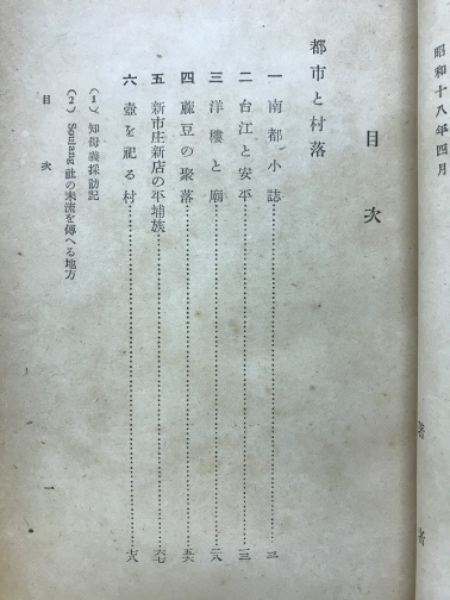 昭和十八年四月
著者
目次
都市と村落
一 南都小誌……三
二 台江と安平……一三
三 洋樓と廟……二八
四 蔴豆の聚落……五六
五 新市庄新店の平埔族……六七
六 壺を祀る村……七八
(1) 知母義採訪記
(2) Soulang社の末流を傳へる地方
目次 一